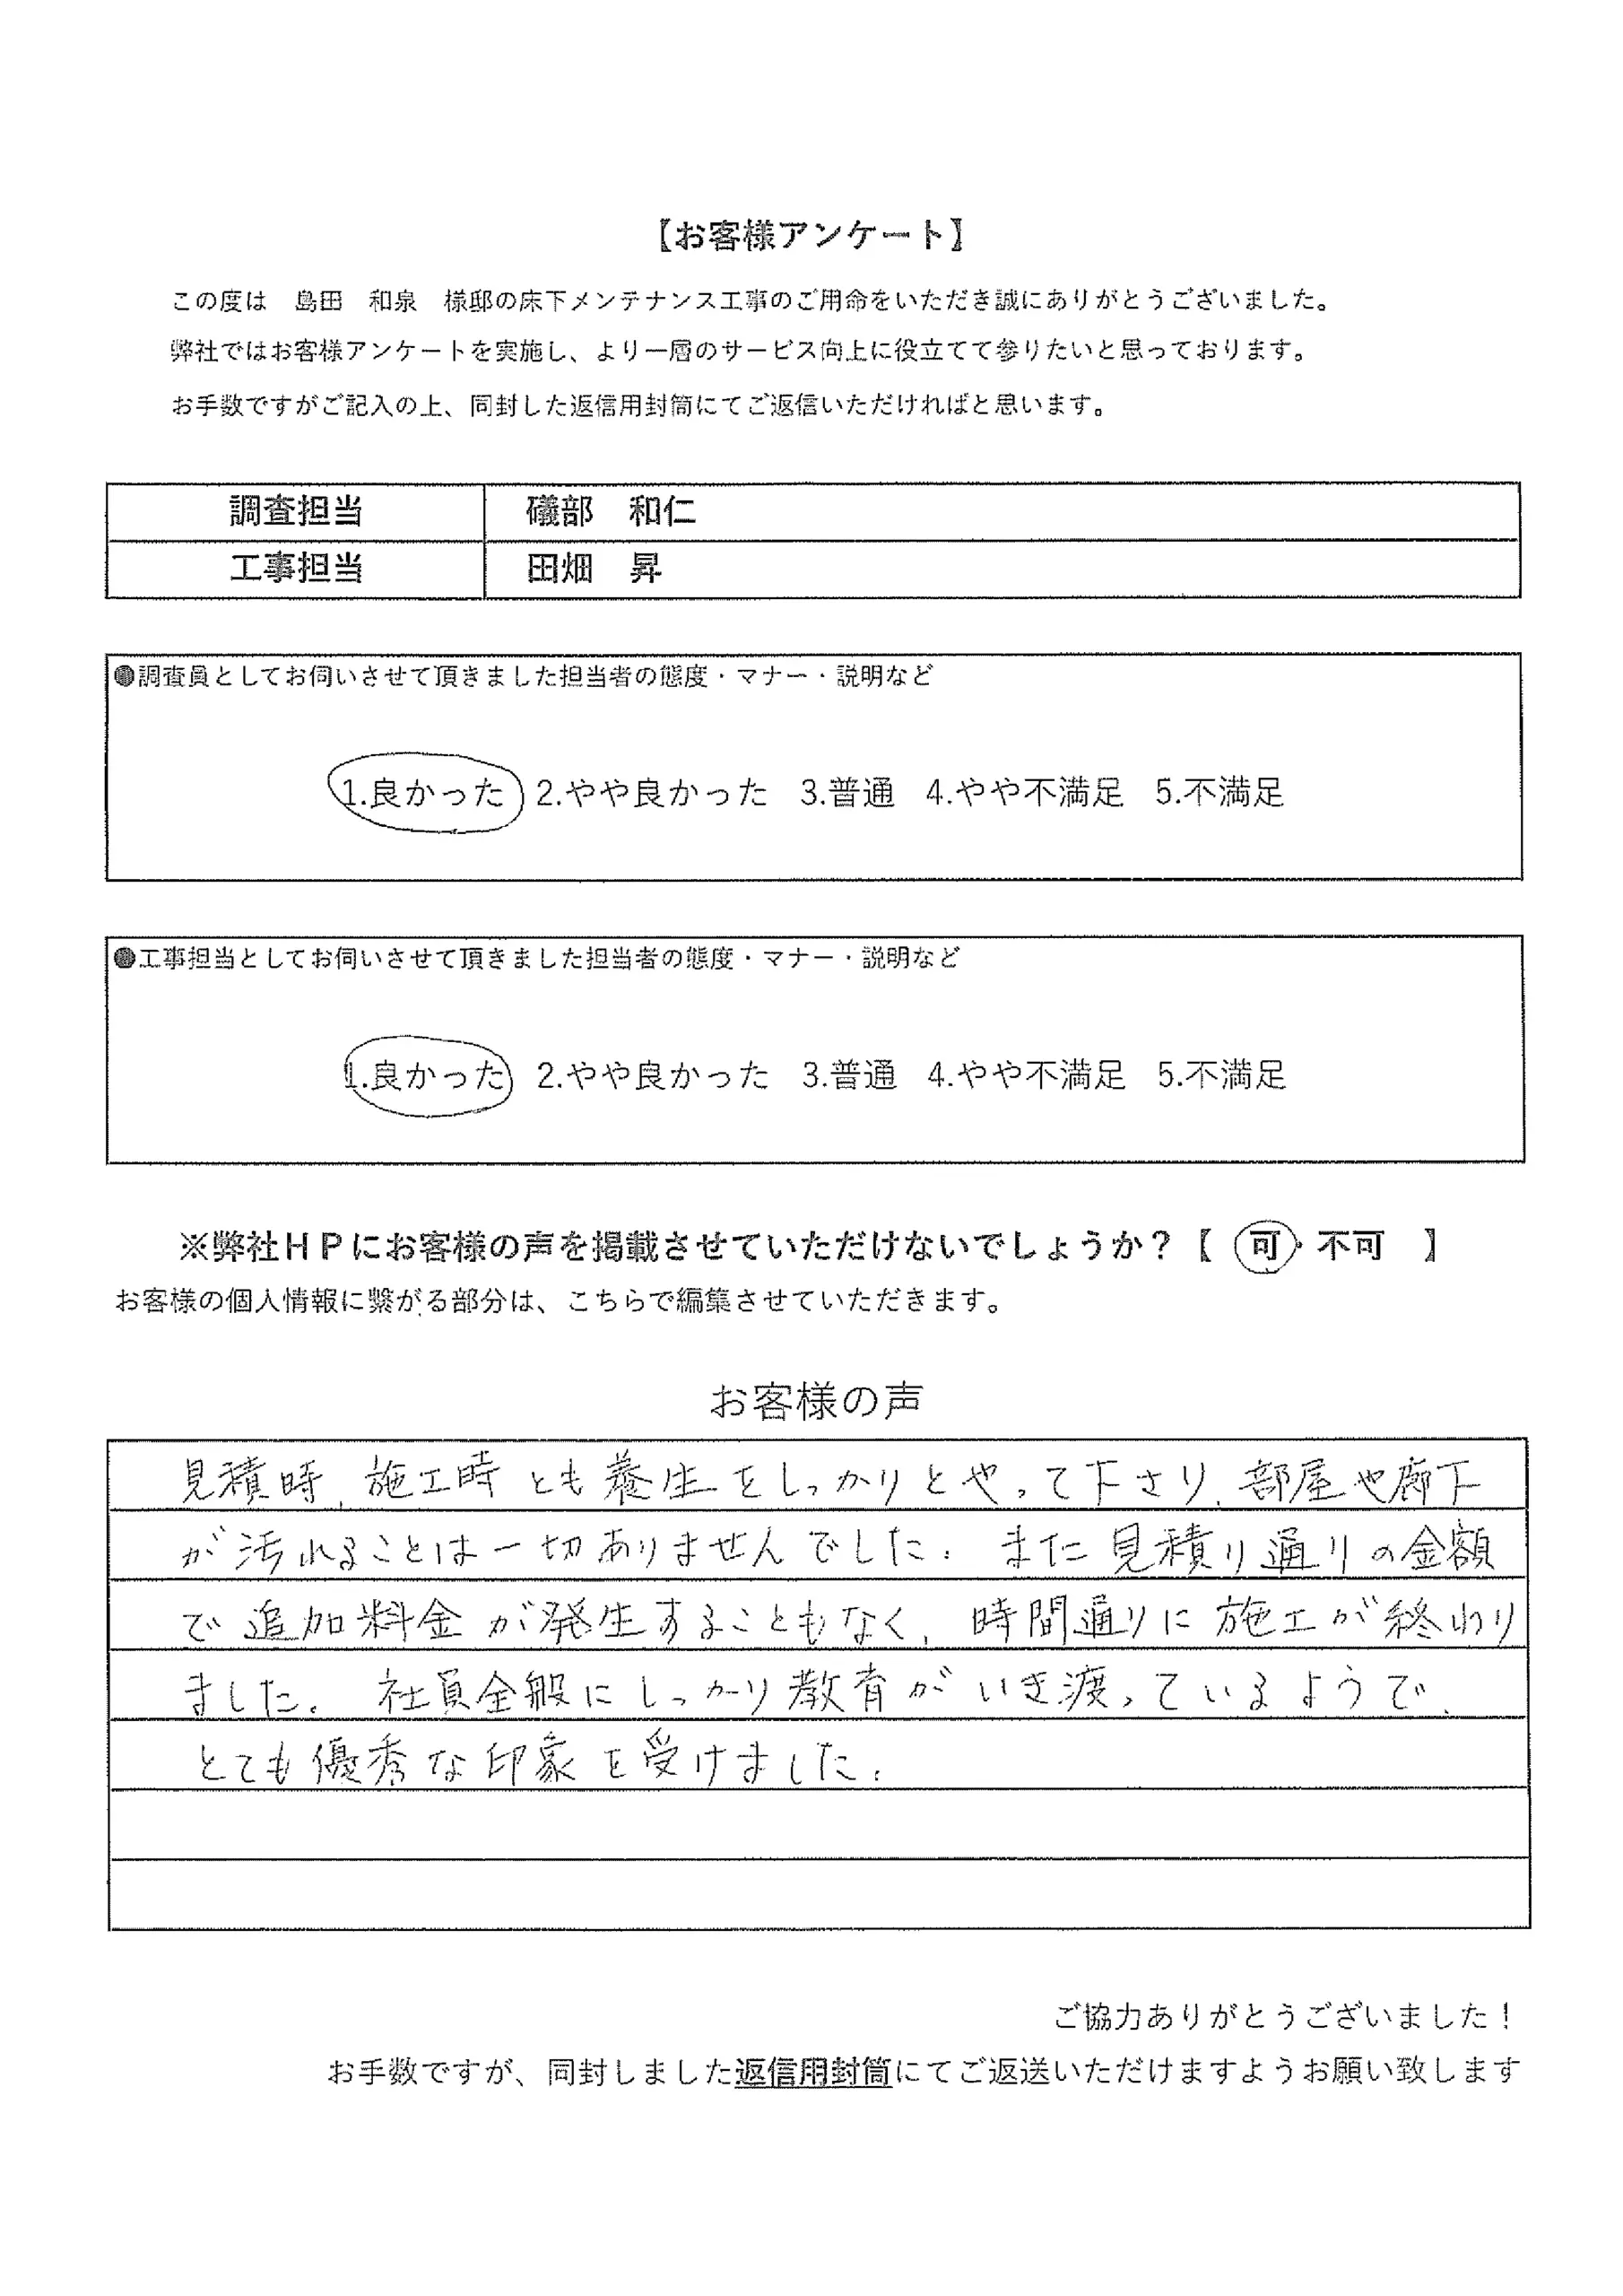 【お客様アンケート】
この度は　島田　和泉　様邸の床下メンテナンス工事のご用命をいただき誠にありがとうございました。
弊社ではお客様アンケートを実施し、より一層のサービス向上に役立てて参りたいと思っております。
お手数ですがご記入の上、同封した返信用封筒にてご返信いただければと思います。
調査担当　礒部　和仁
工事担当　田畑　昇
●調査員としてお伺いさせて頂きました担当者の態度・マナー・説明など
1.良かった 2.やや良かった 3.普通 4.やや不満足 5.不満足
●工事担当としてお伺いさせて頂きました担当者の態度・マナー・説明など
1.良かった 2.やや良かった 3.普通 4.やや不満足 5.不満足
※弊社ＨＰにお客様の声を掲載させていただけないでしょうか？【　可・不可　】
お客様の個人情報に繋がる部分は、こちらで編集させていただきます。
お客様の声
見積時、施工時とも養生をしっかりとやって下さり、部屋や廊下
が汚れることは一切ありませんでした。また見積り通りの金額
で追加料金が発生することもなく、時間通りに施工が終わり
ました。社員全般にしっかり教育がいき渡っているようで、
とても優秀な印象を受けました。
ご協力ありがとうございました！
お手数ですが、同封しました返信用封筒にてご返送いただけますようお願い致します